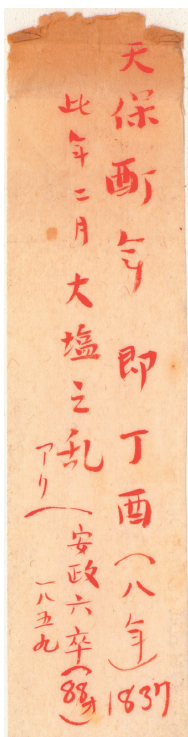 天保酉年 即丁酉(八年)1837
此年二月大塩之乱アリ(安政六卒(88才)
一八五九